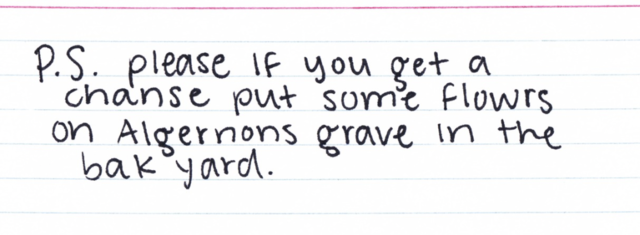 P.S. please if you get a
chanse put some flowrs
on Algernons grave in the
bak yard.